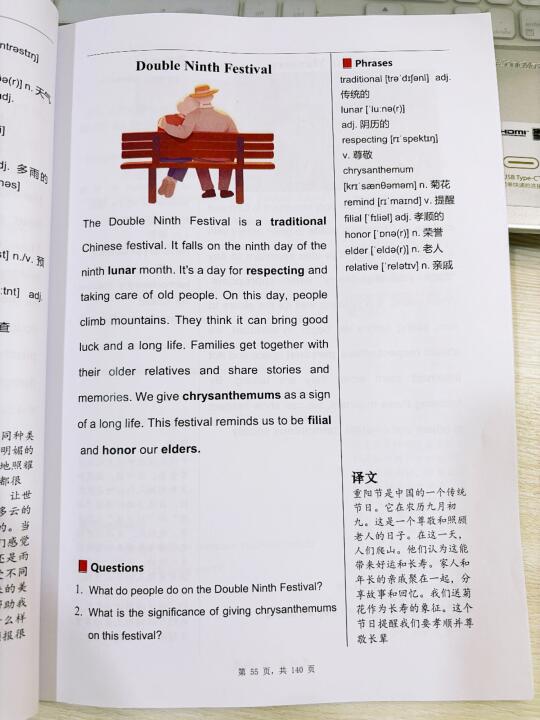 Double Ninth Festival
The Double Ninth Festival is a traditional
Chinese festival. It falls on the ninth day of the
ninth lunar month. It's a day for respecting and
taking care of old people. On this day, people
climb mountains. They think it can bring good
luck and a long life. Families get together with
their older relatives and share stories and
memories. We give chrysanthemums as a sign
of a long life. This festival reminds us to be filial
and honor our elders.
Questions
1. What do people do on the Double Ninth Festival?
2. What is the significance of giving chrysanthemums
on this festival?
Phrases
traditional [trəˈdɪʃənl] adj.
传统的
lunar [ˈluːnə(r)]
adj. 阴历的
respecting [rɪˈspektɪŋ]
v. 尊敬
chrysanthemum
[krɪˈsænθəməm] n. 菊花
remind [rɪˈmaɪnd] v. 提醒
filial [ˈfɪliəl] adj. 孝顺的
honor [ˈɒnə(r)] n. 荣誉
elder [ˈeldə(r)] n. 老人
relative [ˈrelətɪv] n. 亲戚
译文
重阳节是中国的一个传统
节日。它在农历九月初
九。这是一个尊敬和照顾
老人的日子。在这一天，
人们爬山。他们认为这能
带来好运和长寿。家人和
年长的亲戚聚在一起，分
享故事和回忆。我们送菊
花作为长寿的象征。这个
节日提醒我们要孝顺并尊
敬长辈
第 55 页，共 140 页
ntrəstɪŋ]
ə(r)] n. 天气
adj.
dj. 多雨的
st] n./v. 预
adj.
查
同种类
明媚的
地照耀
都很
让世
多云的
的。当
们感觉
还是雨
不同
的美
帮助我
么样
报很
HDMI
USB Type-C